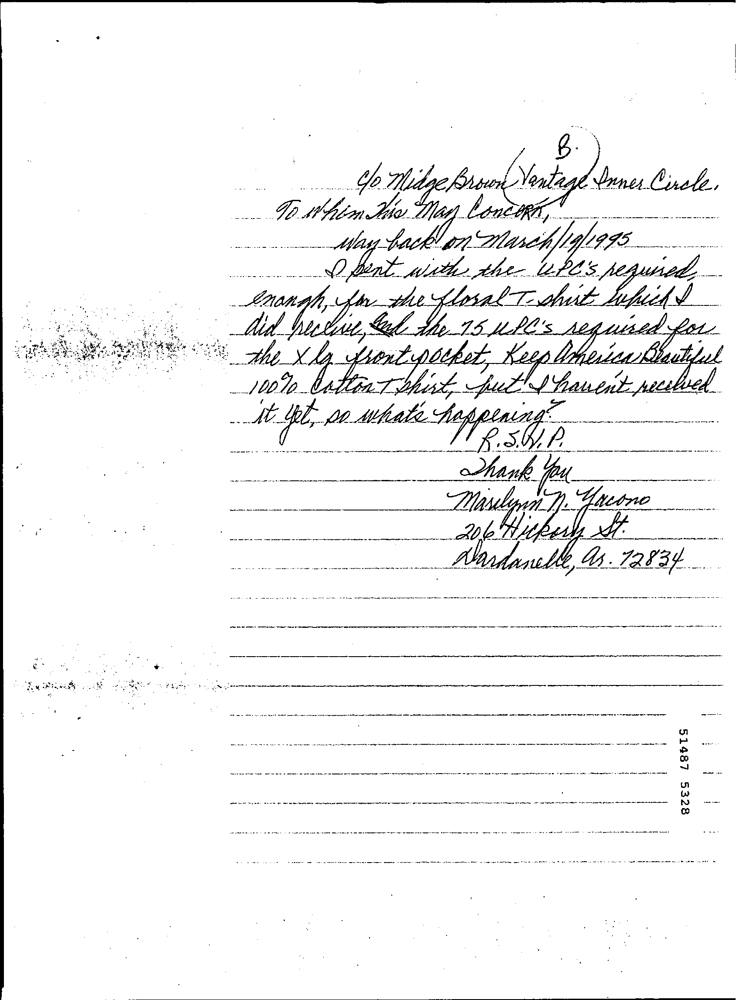 B.
c/o Midge Brown (Vantage Inner Circle.
To Whom This May Concern,
way back on March/19/1995
I sent with the UPC's required
enough, for the floral T-shirt which I
did receive, and the 75 UPC's required for
the X lg front pocket, Keep America Beautiful
100% Cotton T shirt, but I haven't received
it yet, so what's happening?
R.S.V.P.
Thank You
Marilynn N. Yacono
206 Hickory St.
Dardanelle, Ar. 72834
51487 5328